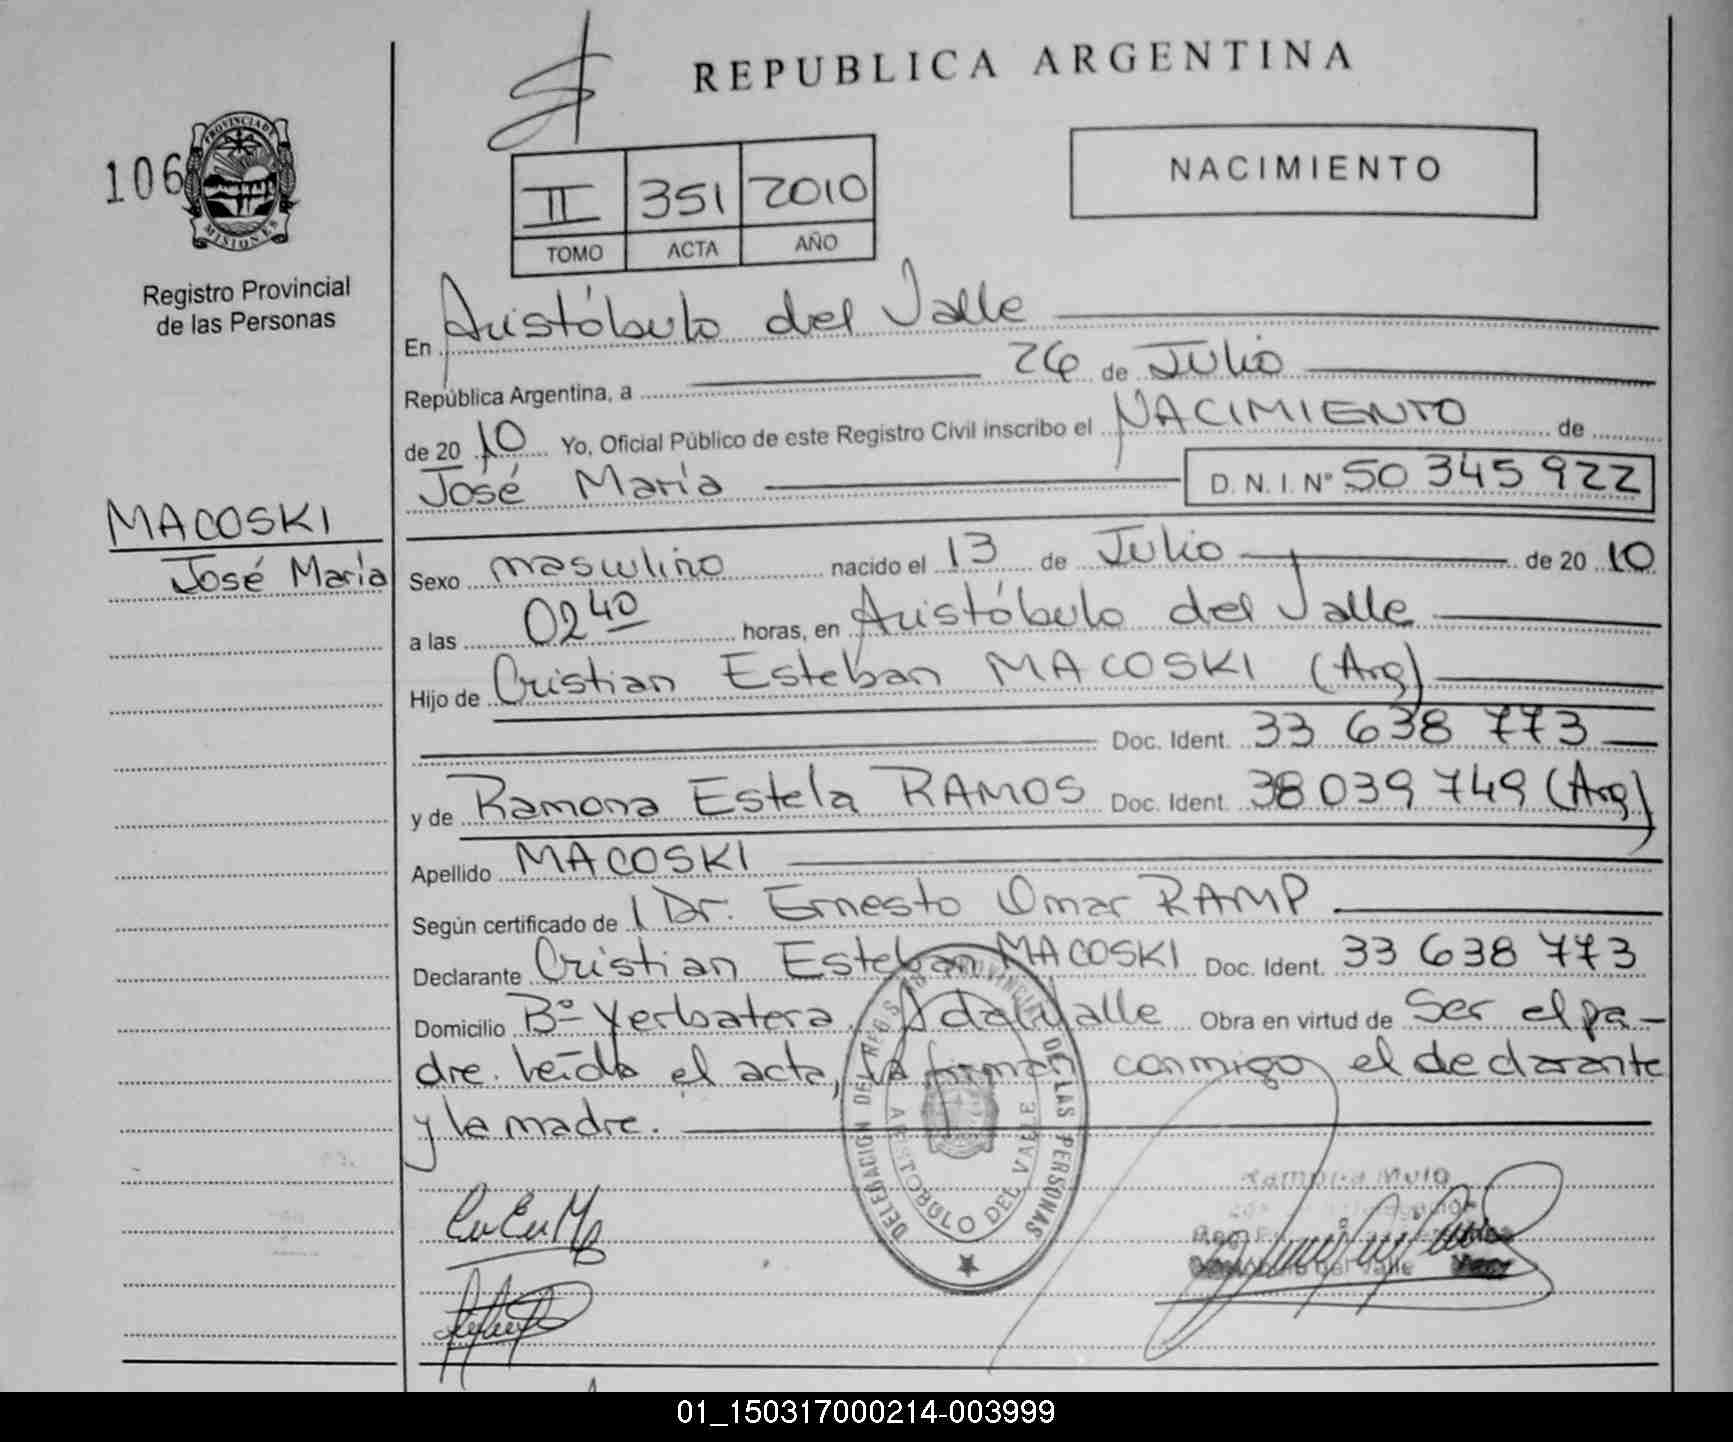 REPUBLICA ARGENTINA
106
PROVINCIA DE MISIONES
NACIMIENTO
II 351 2010
TOMO ACTA AÑO
Registro Provincial
de las Personas
En Aristóbulo del Valle
República Argentina, a 26 de Julio
de 20 10 Yo, Oficial Público de este Registro Civil inscribo el NACIMIENTO de
José María D. N. I. Nº 50 345 922
MACOSKI
José María
Sexo masculino nacido el 13 de Julio de 20 10
a las 02 40 horas, en Aristóbulo del Valle
Hijo de Cristian Esteban MACOSKI (Arg)
Doc. Ident. 33 638 773
y de Ramona Estela RAMOS Doc. Ident. 38 039 749 (Arg)
Apellido MACOSKI
Según certificado de Dr. Ernesto Omar RAMP
Declarante Cristian Esteban MACOSKI Doc. Ident. 33 638 773
Domicilio Bº Yerbatera, A del Valle Obra en virtud de Ser el pa-
dre. leída el acta, la firman conmigo el declarante
y la madre.
DELEGACION DE REGISTRO PROVINCIAL DE LAS PERSONAS
ARISTOBULO DEL VALLE
del Valle
01_150317000214-003999